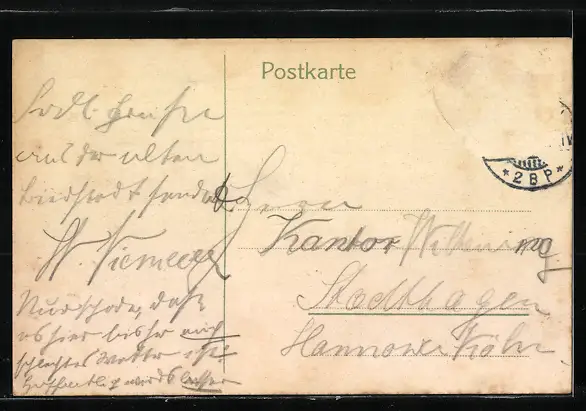 Postkarte
* 2 B P *
Grüße
aus der alten
Bierstadt sendet
W. Niemeyer
Nur schade, daß
es hier bisher nur
schlechtes Wetter ist
Hoffentlich wirds besser
Herrn
Kantor
Stadthagen
Hannover